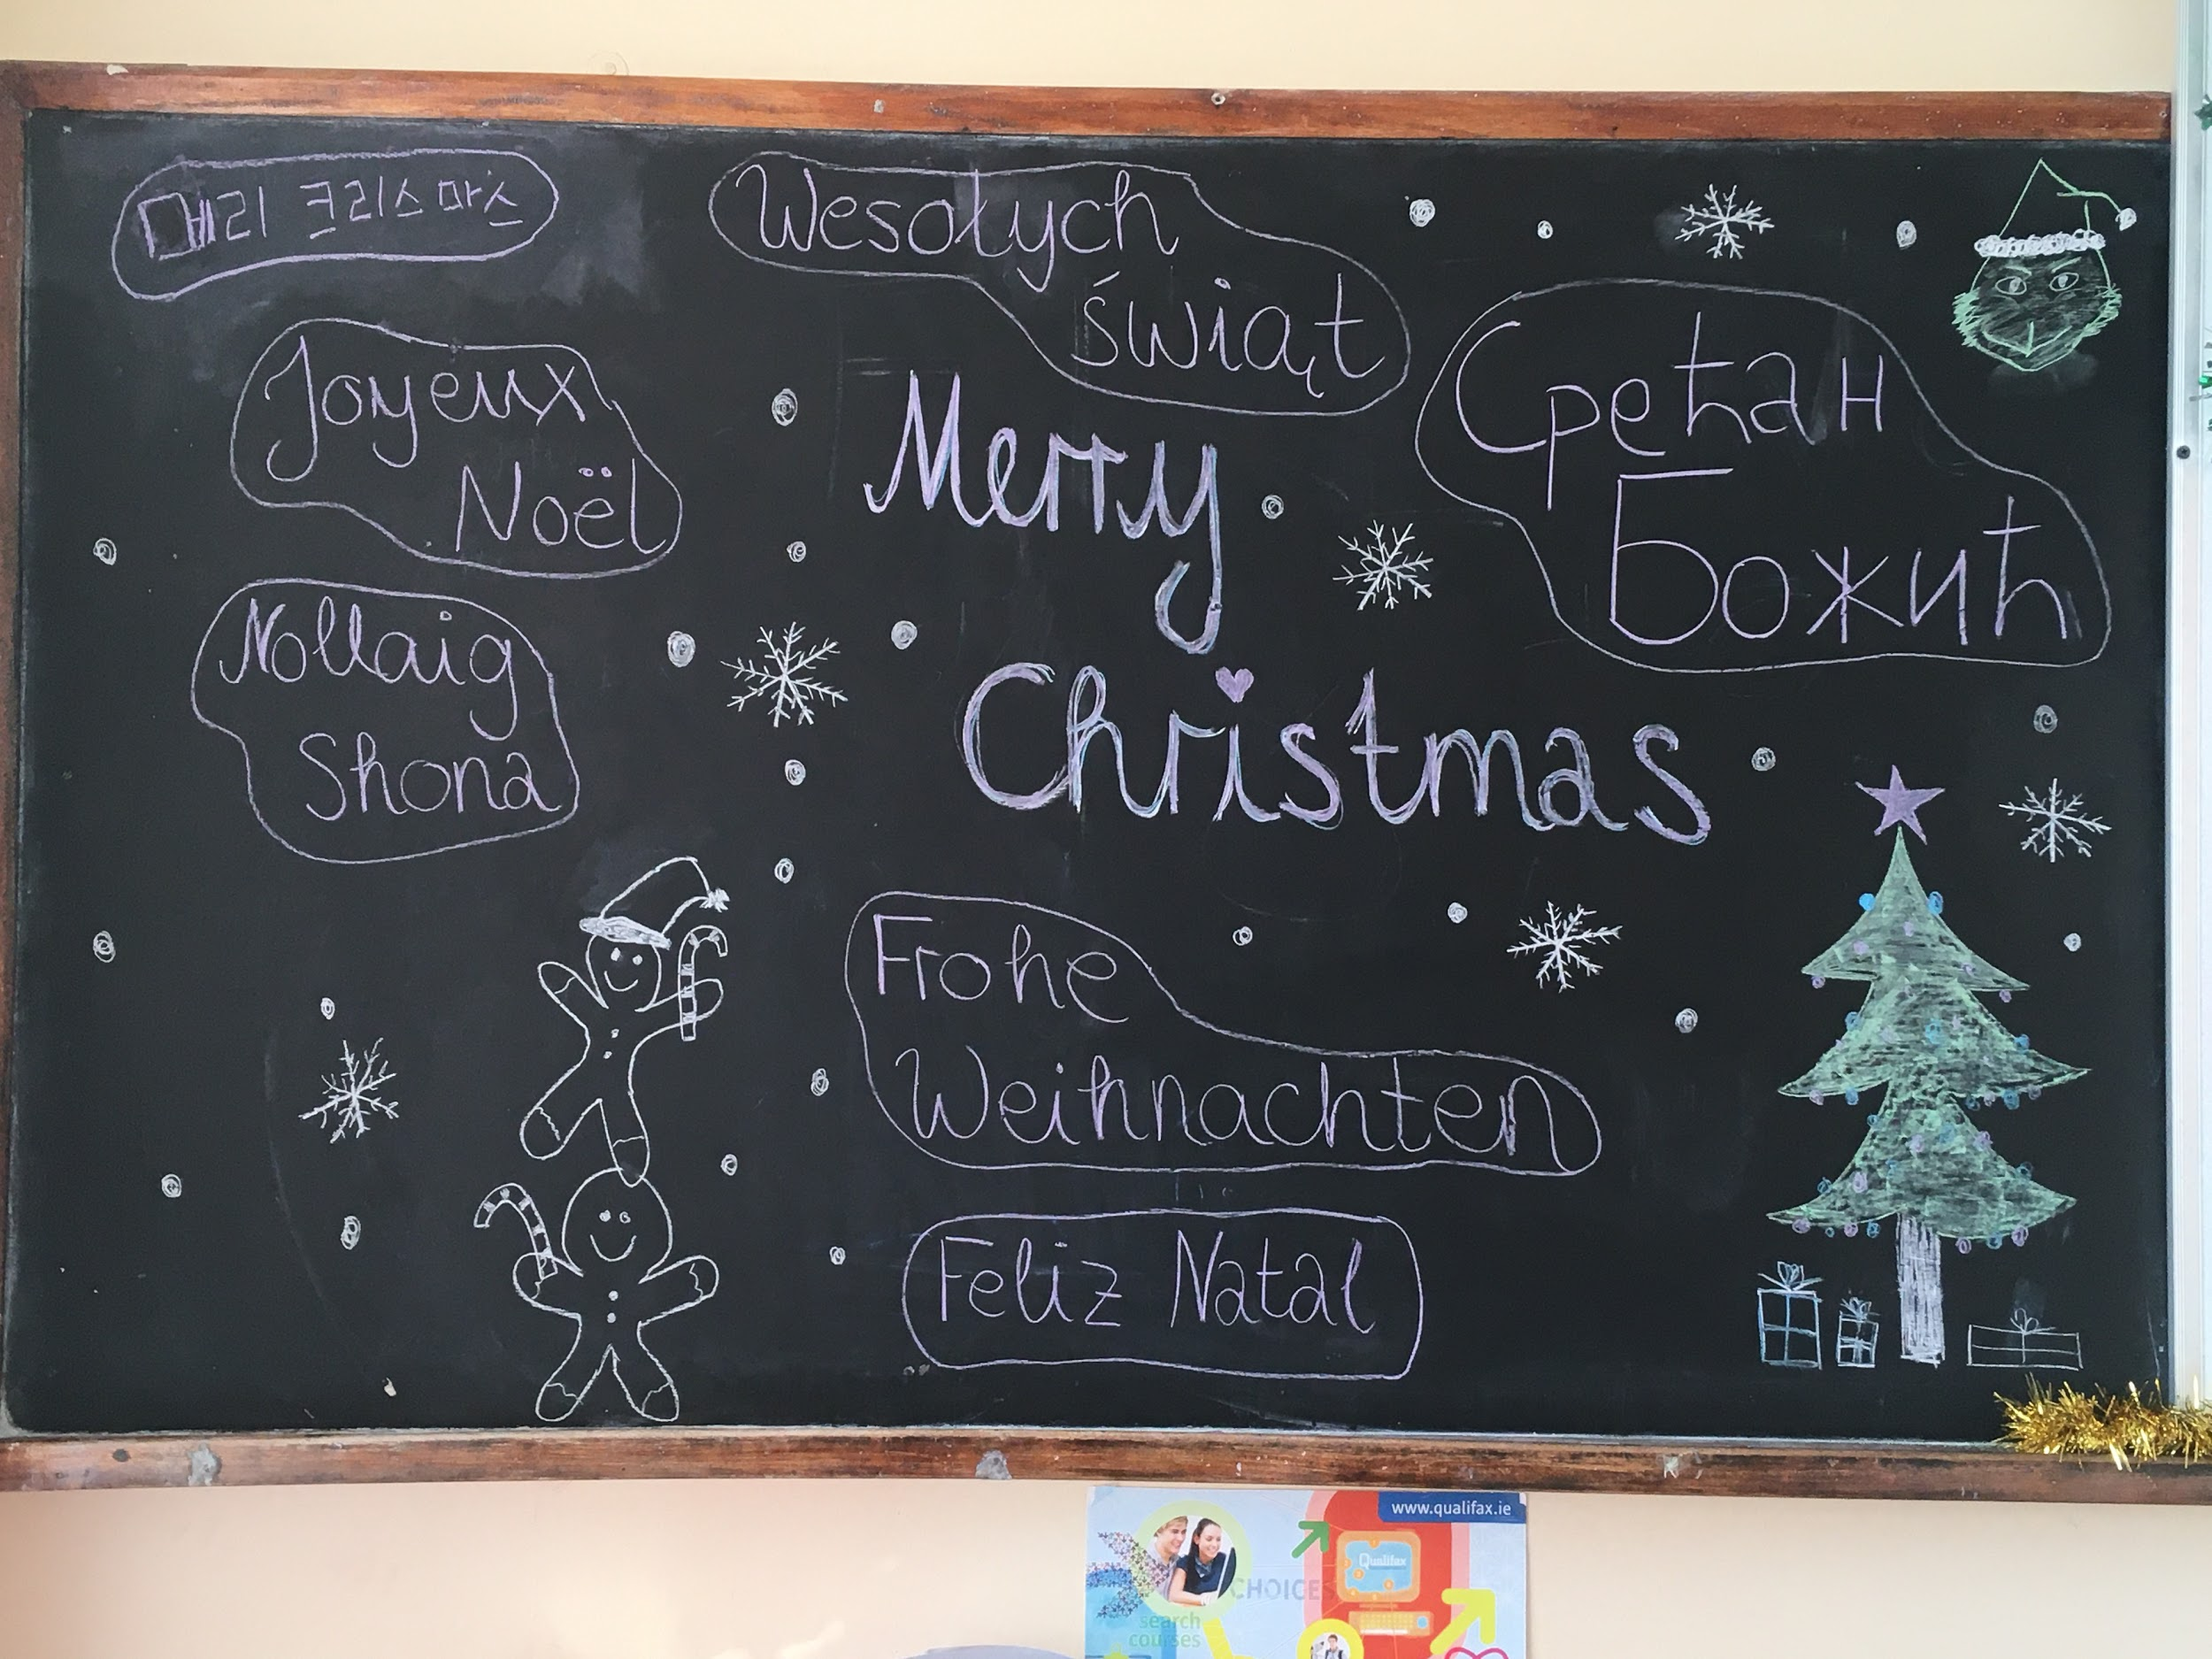 메리 크리스마스
Wesołych
świąt
Joyeux
Noël
Срећан
Божић
Merry
Christmas
Nollaig
Shona
Frohe
Weihnachten
Feliz Natal
www.qualifax.ie
Qualifax
CHOICES
search
courses